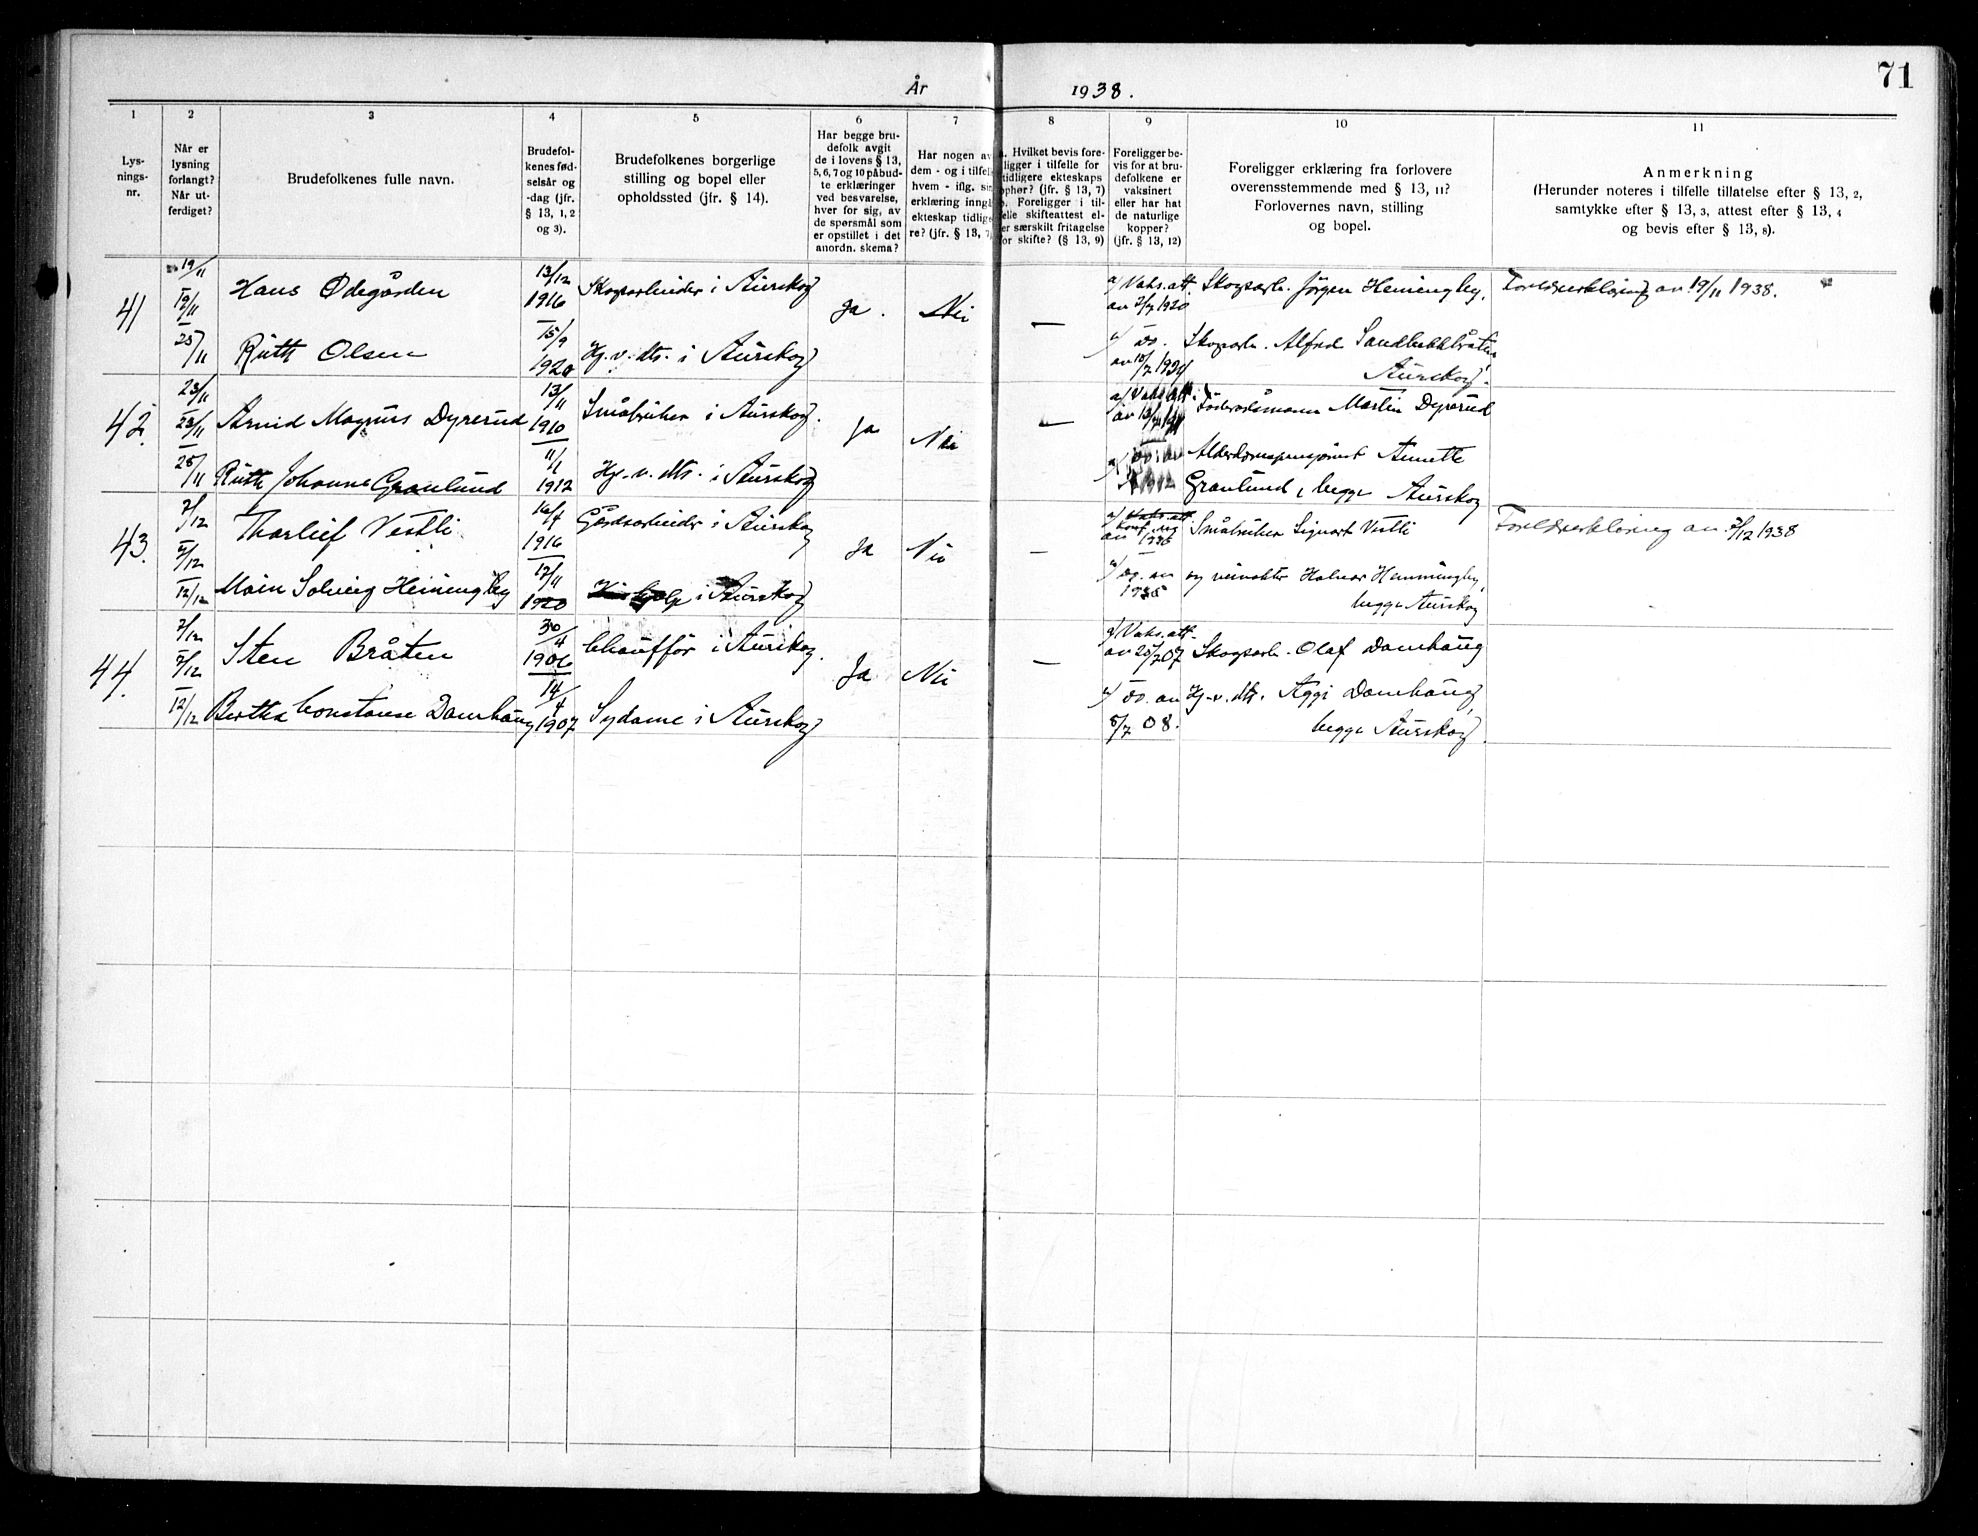 71
År 1938.
1 2 3 4 5 6 7 8 9 10 11
Lys-
nings-
nr.
Når er
lysning
forlangt?
Når ut-
ferdiget?
Brudefolkenes fulle navn.
Brudefol-
kenes fød-
selsår og
-dag (jfr.
§ 13, 1, 2
og 3).
Brudefolkenes borgerlige
stilling og bopel eller
opholdssted (jfr. § 14).
Har begge bru-
defolk avgit
de i lovens § 13,
5, 6, 7 og 10 påbud-
te erklæringer
ved besvarelse,
hver for sig, av
de spørsmål som
er opstillet i det
anordn. skema?
Har nogen av
dem - og i tilfel
hvem - iflg. si
erklæring inngå
ekteskap tidlige
re? (jfr. § 13, 7
. Hvilket bevis fore-
ligger i tilfelle for
tidligere ekteskaps
ophør? (jfr. § 13, 7)
. Foreligger i til-
felle skifteattest el-
er særskilt fritagelse
for skifte? (§ 13, 9)
Foreligger be-
vis for at bru-
defolkene er
vaksinert
eller har hat
de naturlige
kopper?
(jfr. § 13, 12)
Foreligger erklæring fra forlovere
overensstemmende med § 13, 11?
Forlovernes navn, stilling
og bopel.
Anmerkning
(Herunder noteres i tilfelle tillatelse efter § 13, 2,
samtykke efter § 13, 3, attest efter § 13, 4
og bevis efter § 13, 8).
41
19/11
19/11
25/11
Hans Ødegården
Ruth Olsen
13/12
1916
15/9
1920
Skogsarbeider i Aurskog
Hj. v. dts. i Aurskog
Ja.
Nei
—
a/ Vaks. att.
av 2/7 1920
do.
av 10/7 1924
Skogsarb. Jørgen Hemingby,
Skogsarb. Alfred Sandbekkbråten
Aurskog.
Foreldreerklæring av 19/11 1938.
42.
23/11
23/11
25/11
Arvid Magnus Dyrerud
Ruth Johanne Granlund
13/11
1910
11/1
1912
Småbruker i Aurskog.
Hj. v. dts. i Aurskog
Ja
Nei
—
a/ Vaks. att.
Føderådsmann Martin Dyrerud
Alderdomspensjonist Annette
Granlund, begge Aurskog
43.
7/12
7/12
12/12
Thorleif Vestli
Moin Solveig Hemingby
16/4
1916
17/11
1920
Gårdsarbeider i Aurskog
i Aurskog
Ja
Nei
—
a/ Vaks. att.
Konf. ug
do. av
Småbruker Sigvart Vestli
og veivokter Halvor Hemmingby,
begge Aurskog
Foreldreerklæring av 7/12 1938
44.
7/12
7/12
12/12
Sten Bråten
Bertha Constanse Damhaug
30/4
1906
14/4
1907
Chauffør i Aurskog.
Sydame i Aurskog
Ja
Nei
—
a/ Vaks. att.
av 20/7 07
do. av
8/7 08.
Skogsarb. Olaf Damhaug
Hj. v. dts. Aggi Damhaug,
begge Aurskog.